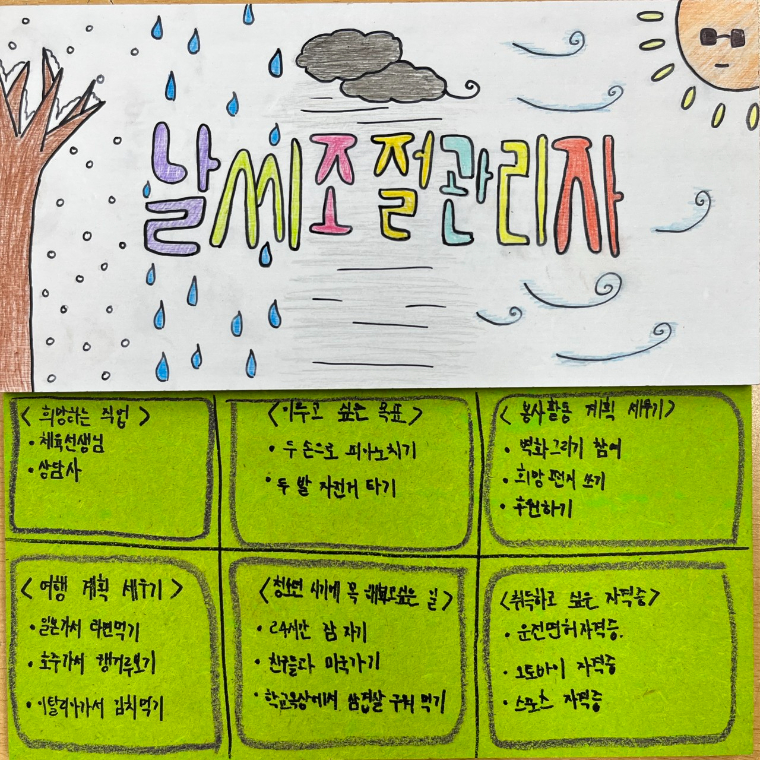 날씨조절관리자
<희망하는 직업>
• 체육선생님
• 상담사
<이루고 싶은 목표>
• 두 손으로 피아노치기
• 두 발 자전거 타기
<봉사활동 계획 세우기>
• 벽화그리기 참여
• 희망편지 쓰기
• 후원하기
<여행 계획 세우기>
• 일본가서 라면먹기
• 호주가서 캥거루보기
• 이탈리아가서 김치먹기
<청소년 시기에 꼭 해보고싶은 일>
• 24시간 잠 자기
• 친구들과 미국가기
• 학교옥상에서 삼겹살 구워 먹기
<취득하고 싶은 자격증>
• 운전면허자격증.
• 오토바이 자격증
• 스포츠 자격증